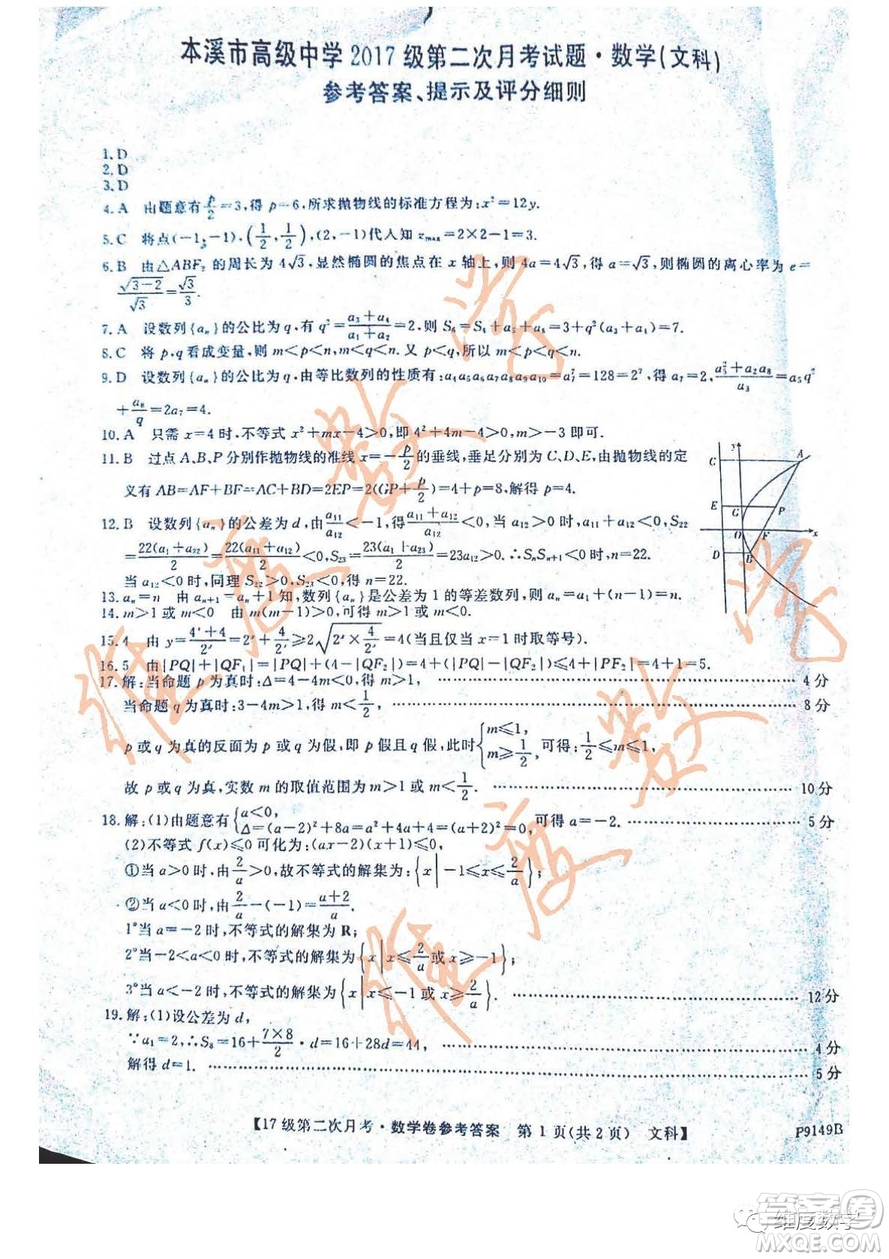 本溪市高级中学2017级第二次月考试题·数学(文科)
参考答案、提示及评分细则
1.D
2.D
3.D
4.A 由题意有p/2=3,得p=6,所求抛物线的标准方程为:x²=12y.
5.C 将点(-1,-1),(1/2,1/2),(2,-1)代人知z_max=2×2-1=3.
6.B 由△ABF₂的周长为4√3,显然椭圆的焦点在x轴上,则4a=4√3,得a=√3,则椭圆的离心率为e=
√(3-2)/√3=√3/3.
7.A 设数列{aₙ}的公比为q,有q²=(a₃+a₄)/(a₁+a₂)=2,则S₆=S₄+a₅+a₆=3+q²(a₃+a₄)=7.
8.C 将p,q看成变量,则m<p<n,m<q<n.又p<q,所以m<p<q<n.
9.D 设数列{aₙ}的公比为q.由等比数列的性质有:a₄a₅a₆a₇a₈a₉a₁₀=a₇⁷=128=2⁷,得a₇=2,(a₅²+a₂a₈)/a₃=a₅q²
+a₈/q=2a₇=4.
10.A 只需x=4时,不等式x²+mx-4>0,即4²+4m-4>0,m>-3即可.
11.B 过点A、B、P分别作抛物线的准线x=-p/2的垂线,垂足分别为C、D、E,由抛物线的定
义有AB=AF+BF=AC+BD=2EP=2(GP+p/2)=4+p=8,解得p=4.
12.B 设数列{aₙ}的公差为d,由a₁₁/a₁₂<-1,得(a₁₁+a₁₂)/a₁₂<0,当a₁₂>0时,a₁₁+a₁₂<0,S₂₂
=22(a₁+a₂₂)/2=22(a₁₁+a₁₂)/2<0,S₂₃=23(a₁+a₂₃)/2=23a₁₂>0.∴SₙSₙ₊₁<0时,n=22.
当a₁₂<0时,同理S₂₂>0,S₂₃<0,得n=22.
13.aₙ=n 由aₙ₊₁=aₙ+1知,数列{aₙ}是公差为1的等差数列,则aₙ=a₁+(n-1)=n.
14.m>1或m<0 由m(m-1)>0,可得m>1或m<0.
15.4 由y=(4ˣ+4)/2ˣ=2ˣ+4/2ˣ≥2√(2ˣ×4/2ˣ)=4(当且仅当x=1时取等号).
16.5 由|PQ|+|QF₁|=|PQ|+(4-|QF₂|)=4+(|PQ|-|QF₂|)≤4+|PF₂|=4+1=5.
17.解:当命题p为真时:Δ=4-4m<0,得m>1, 4分
当命题q为真时:3-4m>1,得m<1/2, 8分
p或q为真的反面为p或q为假,即p假且q假,此时{m≤1, m≥1/2,可得:1/2≤m≤1,
故p或q为真,实数m的取值范围为m>1或m<1/2. 10分
18.解:(1)由题意有{a<0, Δ=(a-2)²+8a=a²+4a+4=(a+2)²=0,可得a=-2. 5分
(2)不等式f(x)≤0可化为:(ax-2)(x+1)≤0,
①当a>0时,由2/a>0,故不等式的解集为:{x|-1≤x≤2/a};
②当a<0时,由2/a-(-1)=(a+2)/a.
1°当a=-2时,不等式的解集为R;
2°当-2<a<0时,不等式的解集为{x|x≤2/a或x≥-1};
3°当a<-2时,不等式的解集为{x|x≤-1或x≥2/a}. 12分
19.解:(1)设公差为d,
∵a₁=2,∴S₈=16+(7×8)/2·d=16+28d=44, 4分
解得d=1. 5分
【17级第二次月考·数学卷参考答案 第1页(共2页) 文科】
P9149B
维度数学
维度数学
维度数学
答案圈
MXQE.COM